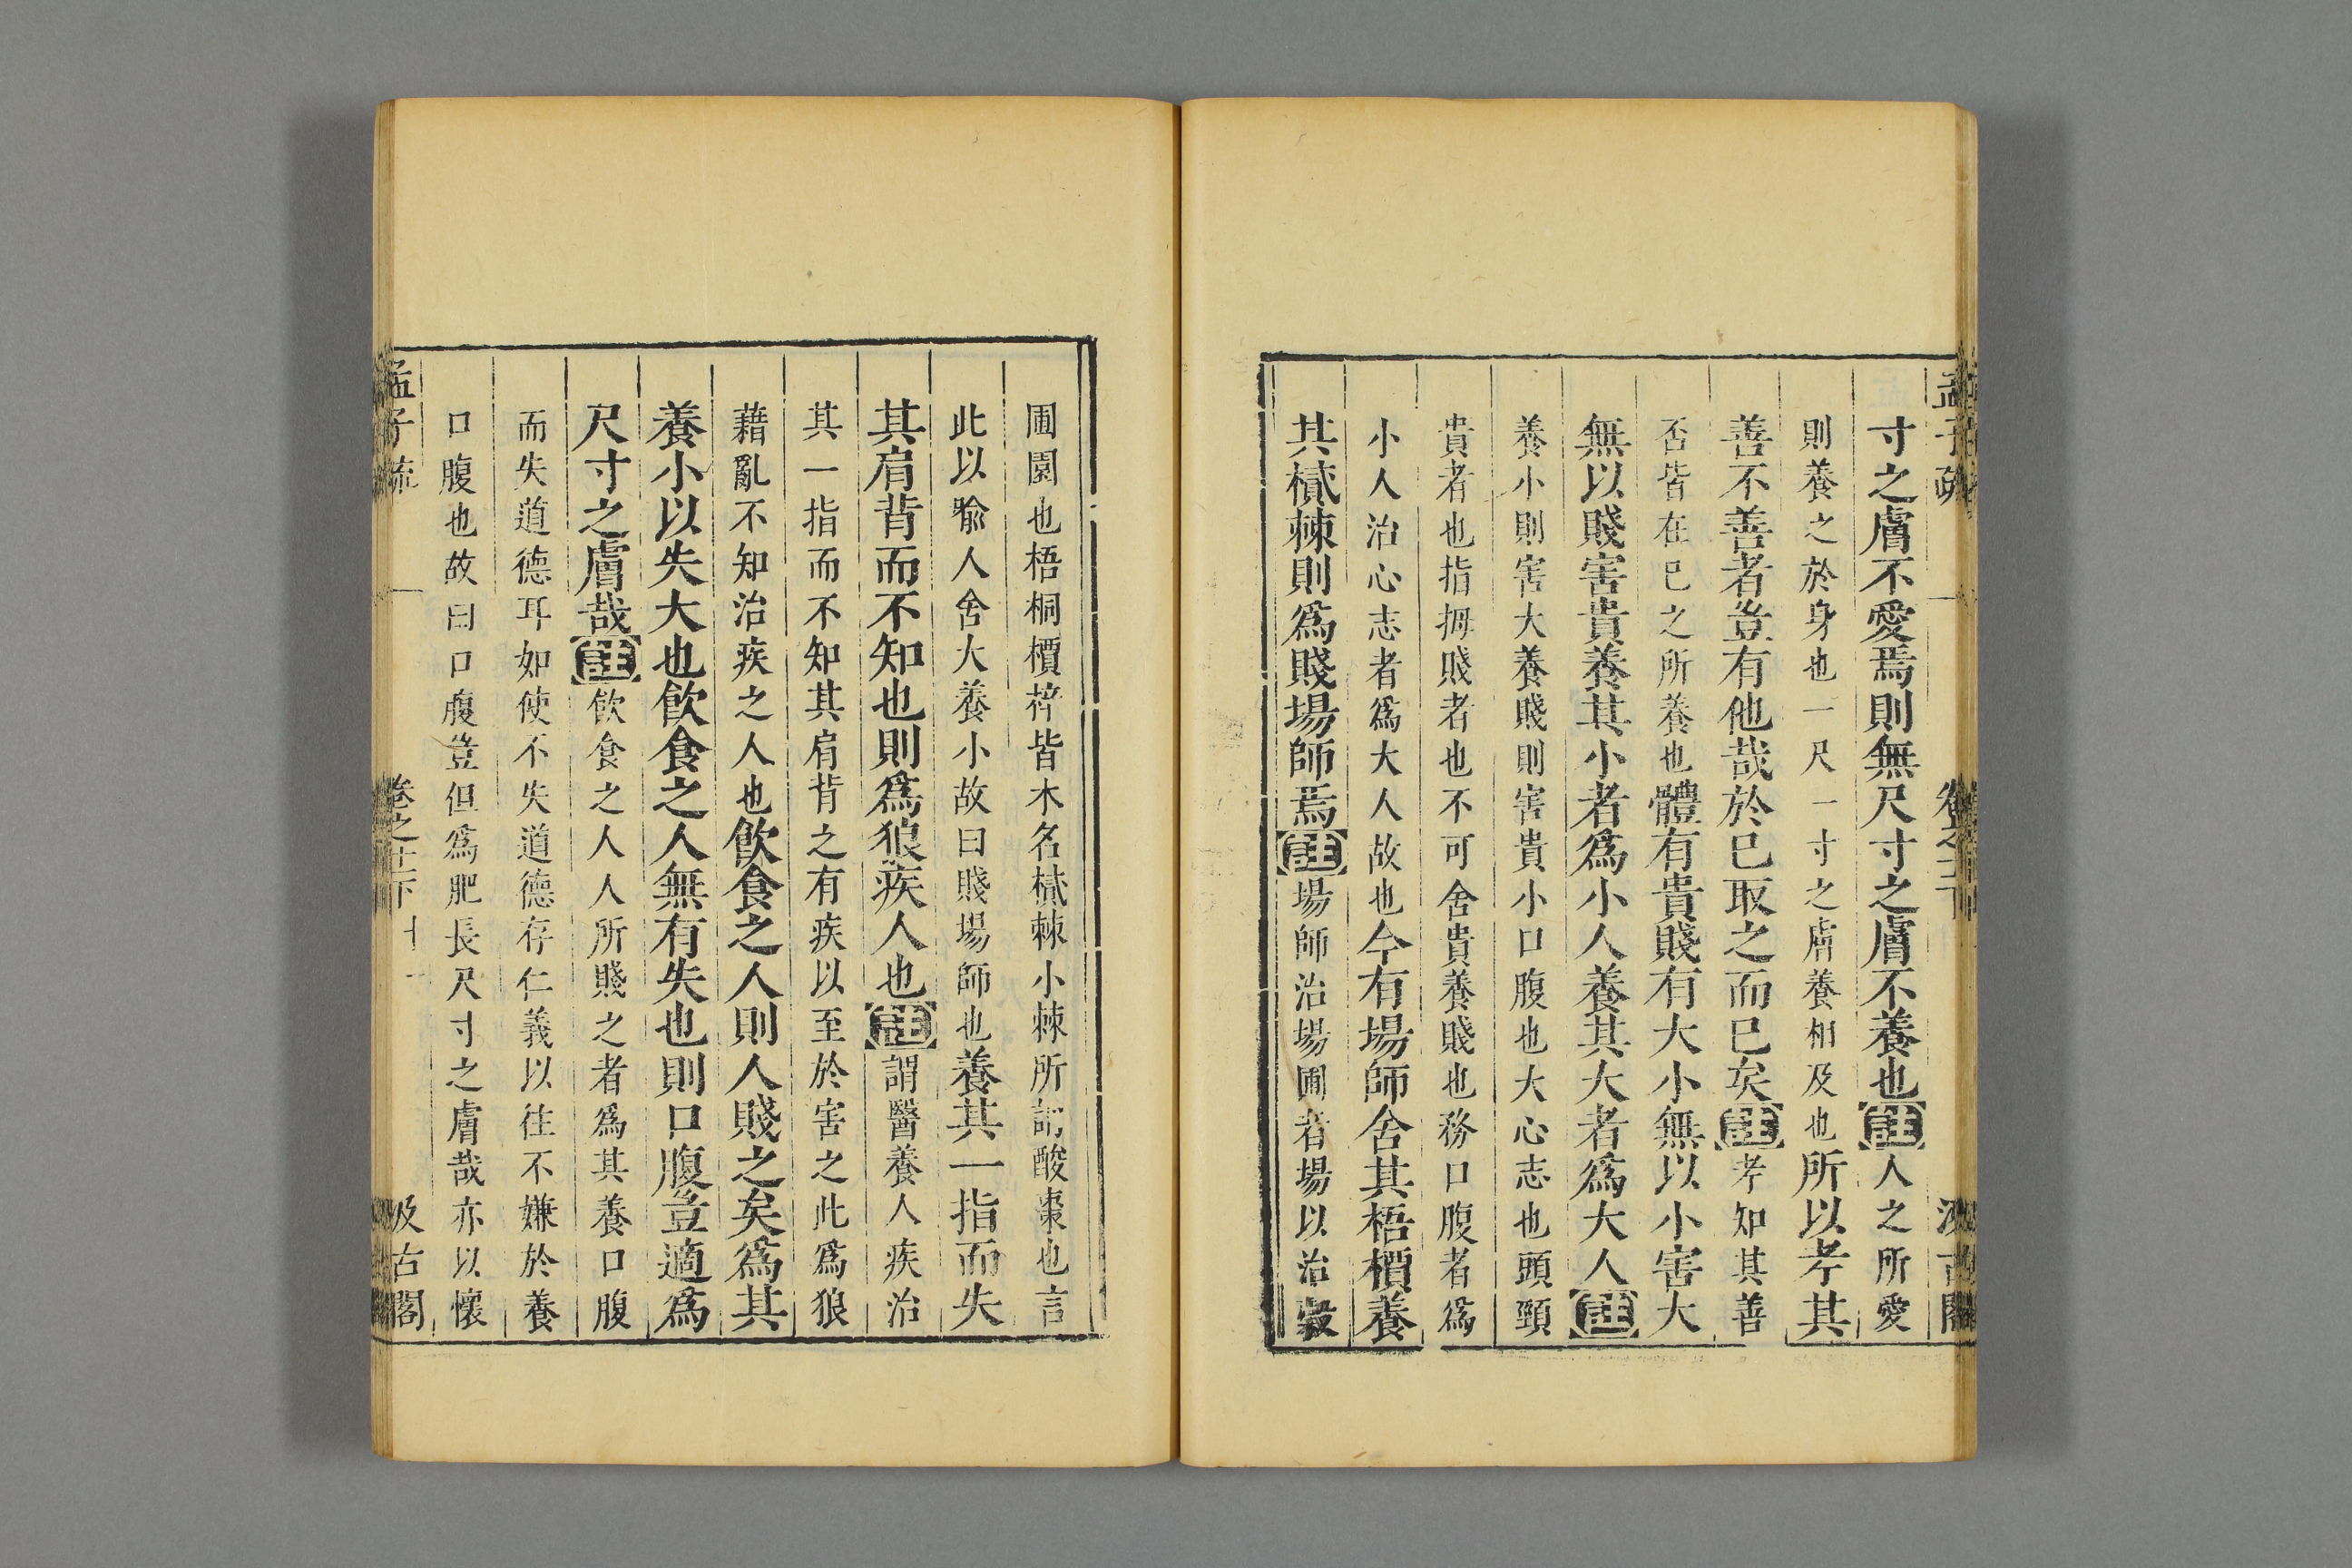 寸之膚不愛焉則無尺寸之膚不養也註人之所愛
則養之於身也一尺一寸之膚養相及也所以考其
善不善者豈有他哉於已取之而已矣註考知其善
否皆在已之所養也體有貴賤有大小無以小害大
無以賤害貴養其小者爲小人養其大者爲大人註
養小則害大養賤則害貴小口腹也大心志也頭頸
貴者也指拇賤者也不可舍貴養賤也務口腹者爲
小人治心志者爲大人故也今有場師舍其梧檟養
其樲棘則爲賤場師焉註場師治場圃者場以治穀
圃園也梧桐檟梓皆木名樲棘小棘所謂酸棗也言
此以喻人舍大養小故曰賤場師也養其一指而失
其肩背而不知也則爲狼疾人也註謂醫養人疾治
其一指而不知其肩背之有疾以至於害之此爲狼
藉亂不知治疾之人也飲食之人則人賤之矣爲其
養小以失大也飲食之人無有失也則口腹豈適爲
尺寸之膚哉註飲食之人人所賤之者爲其養口腹
而失道德耳如使不失道德存仁義以往不嫌於養
口腹也故曰口腹豈但爲肥長尺寸之膚哉亦以懷
孟子疏 卷之十一下 十一 汲古閣